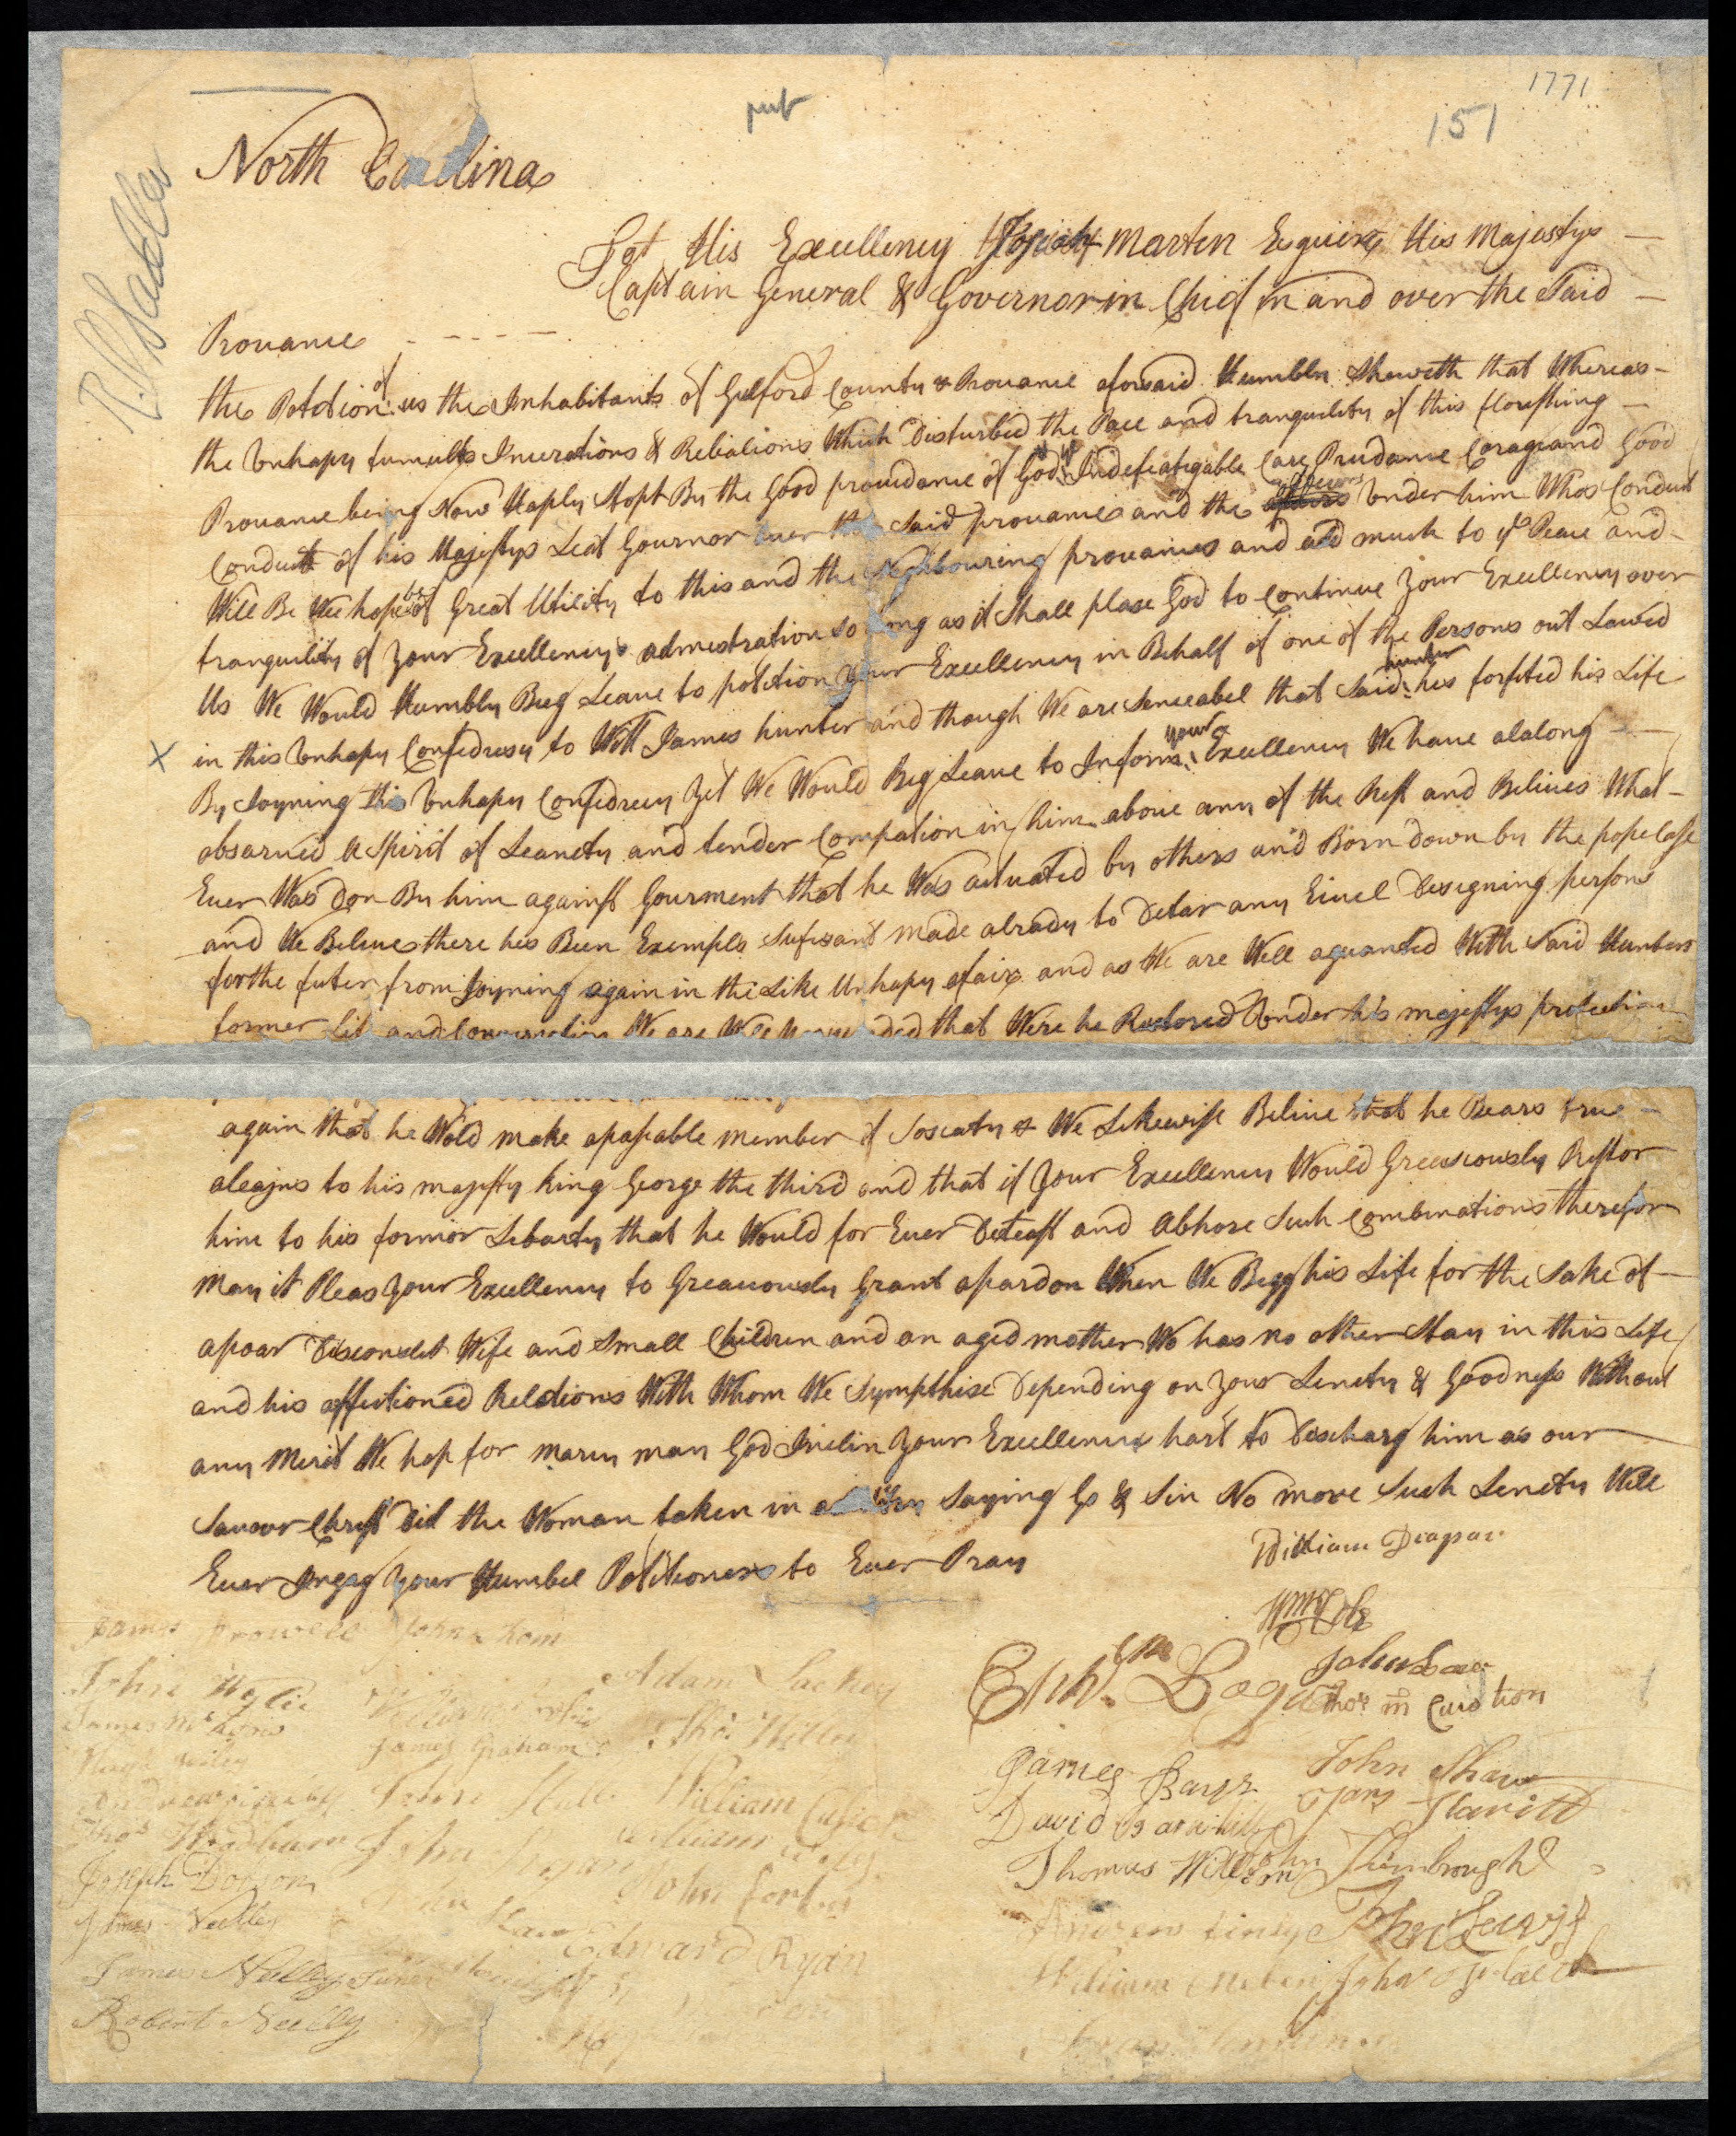 1771
151
pub
North Carolina
To His Excellency Josiah Martin Esquire His Majestys
Captain General & Governor in Chief in and over the Said
Prouance
the Petetion of us the Inhabitants of Gulford County & Prouance aforsaid Humbly Sheweth that Whereas
the Unhapy tumults Incerations & Rebialions Which Disturbed the Pace and tranquility of this flourishing
Prouance being Now Haply Stopt By the Good prouidance of God Indefeatigable Care Prudance Corage and Good
Conduct of his Majestys Leat Gournor over the Said prouance and the officers Under him Whos Conduct
Will Be Wee hope be of Great Utility to this and the Neighbouring prouances and add much to ye Peace and
tranquility of your Excellencys admestration so long as it Shall please God to Continue your Excellency over
Us We Would Humbly Beg Leave to petition your Excellency in Behalf of one of the Persons out Lawed
in this Unhapy Confedresy to Witt James hunter and though We are Senceabel that Said hunter hes forfited his Life
By Joyning this Unhapy Confedrecy yet We Would Beg Leave to Inform your Excellency We have alalong
obsarued a Spirit of Leanety and tender Compation in him above any of the Rest and Belives What
Ever Was Don By him against Gourment that he Was actuated by others and Born down by the popelasse
and We Belive there hes Been Exempls Sufisant made alrady to Detar any Eivel Designing persons
for the futer from Joyning again in the Like Unhapy afair and as We are Well aquanted With Said Hunters
former Life and Conversation We are Well perswaded that Were he Restored Under his majestys protection
again that he Wold make apapable member of Sosiaty & We Likewise Belive that he Bears true
aleajns to his majesty King George the third and that if your Excellency Would Greasiously Restor
him to his formor Libarty that he Would for Ever Deteast and Abhore Such Combinations therefor
May it Pleas your Excellency to Greaciously Grant apardon When We Begg his Life for the Sake of
apoar Disconslet Wife and Small Children and an aged mother Wo has no other Stay in this Life
and his affectioned Relations With Whom We Sympthise Depending on your Lenety & Goodness Without
any Merit We hop for marcy may God Inclin your Excellencys hart to Discharg him as our
Saviour Christ Did the Woman taken in adultry saying Go & Sin No more Such Lenety Will
Ever Ingag your Humbel Petitioners to Ever Pray
William Deapar
John Thom
Adam Lackey
John Wylie
James McLone
James Graham
Thos Willy
William
Joseph Dobson
John Forbes
James Neelly
Edward Ryan
James Neelly Juner
Robert Neelly
James Barr
John Shaw
David
Thomas Willson
John Kimbrough
Andrew Finley
John Lewis
William
John